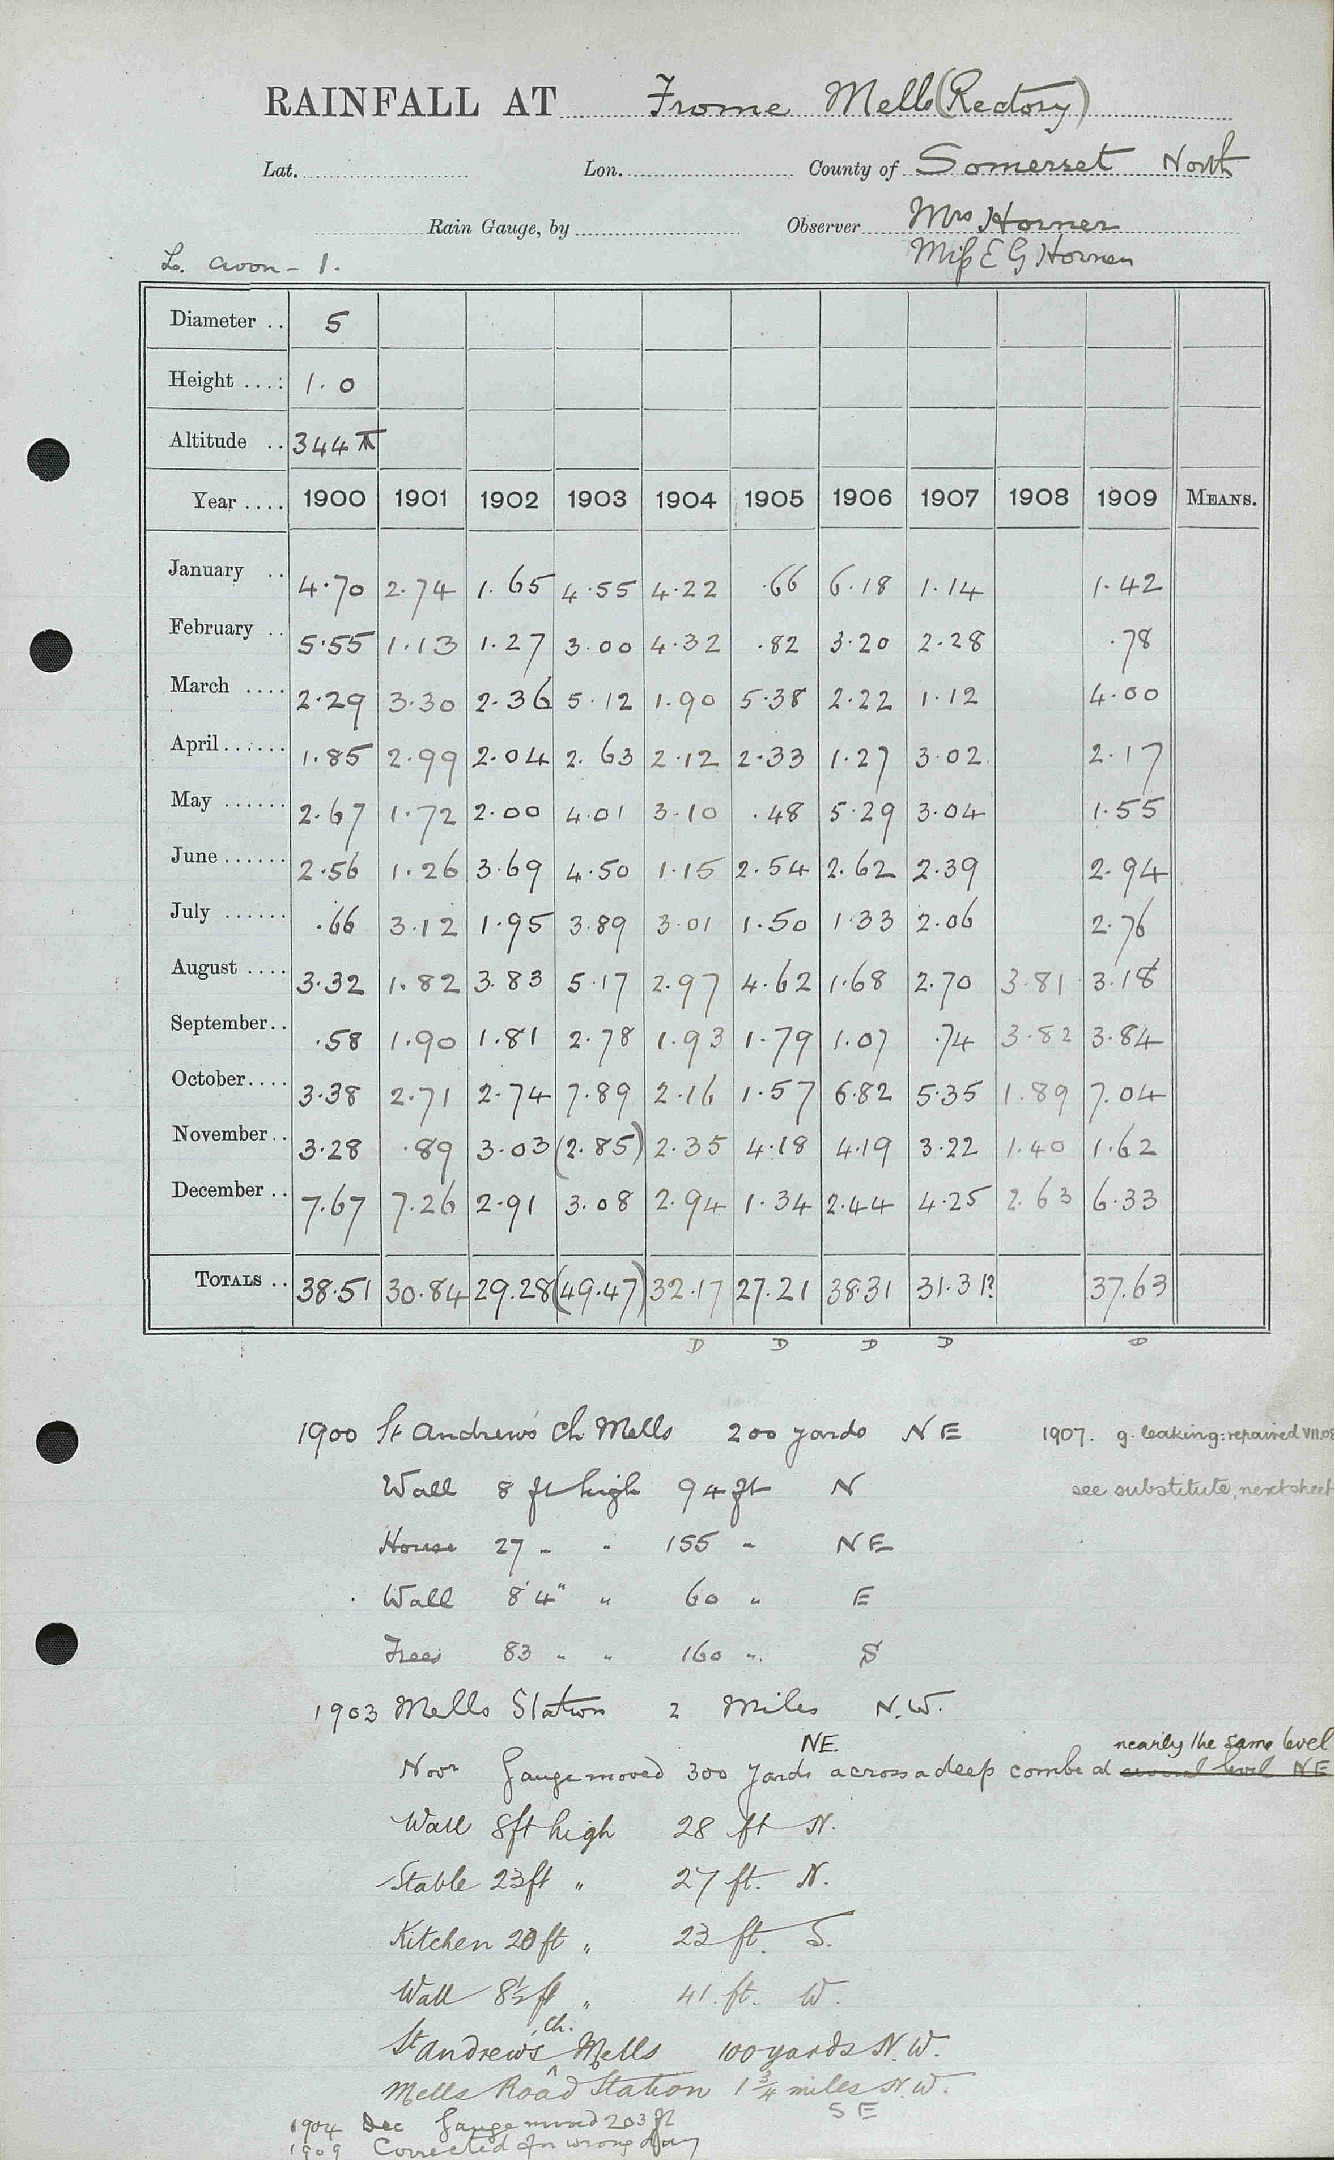 RAINFALL AT Frome Mells (Rectory)
Lat. Lon. County of Somerset North
Rain Gauge, by Observer Mrs Horner
L. Avon - 1. Miss E G Horner
Diameter .. 5
Height ...: 1.0
Altitude .. 344 ft
Year .... 1900 1901 1902 1903 1904 1905 1906 1907 1908 1909 MEANS.
January .. 4.70 2.74 1.65 4.55 4.22 .66 6.18 1.14 1.42
February .. 5.55 1.13 1.27 3.00 4.32 .82 3.20 2.28 .78
March .... 2.29 3.30 2.36 5.12 1.90 5.38 2.22 1.12 4.00
April ...... 1.85 2.99 2.04 2.63 2.12 2.33 1.27 3.02 2.17
May ...... 2.67 1.72 2.00 4.01 3.10 .48 5.29 3.04 1.55
June ...... 2.56 1.26 3.69 4.50 1.15 2.54 2.62 2.39 2.94
July ...... .66 3.12 1.95 3.89 3.01 1.50 1.33 2.06 2.76
August .... 3.32 1.82 3.83 5.17 2.97 4.62 1.68 2.70 3.81 3.18
September.. .58 1.90 1.81 2.78 1.93 1.79 1.07 .74 3.82 3.84
October.... 3.38 2.71 2.74 7.89 2.16 1.57 6.82 5.35 1.89 7.04
November.. 3.28 .89 3.03 (2.85) 2.35 4.18 4.19 3.22 1.40 1.62
December .. 7.67 7.26 2.91 3.08 2.94 1.34 2.44 4.25 2.63 6.33
TOTALS .. 38.51 30.84 29.28 (49.47) 32.17 27.21 38.31 31.31? 37.63
D D D D D
1900 St Andrew's Ch Mells 200 yards NE 1907. g. leaking: repaired VII.08
Wall 8 ft high 94 ft N see substitute, next sheet
House 27 " " 155 " NE
Wall 8' 4" " 60 " E
Trees 83 " " 160 " S
1903 Mells Station 2 Miles N.W.
NE nearly the same level
Novr Gauge moved 300 yards across a deep combe at level NE
Wall 8ft high 28 ft N.
Stable 23ft " 27 ft. N.
Kitchen 20 ft " 23 ft. S.
Wall 8½ ft " 41 ft. W.
St Andrew's Ch. Mells 100 yards N.W.
Mells Road Station 1 3/4 miles N.W.
1904 Dec Gauge moved 203 ft SE
1909 Corrected for wrong day